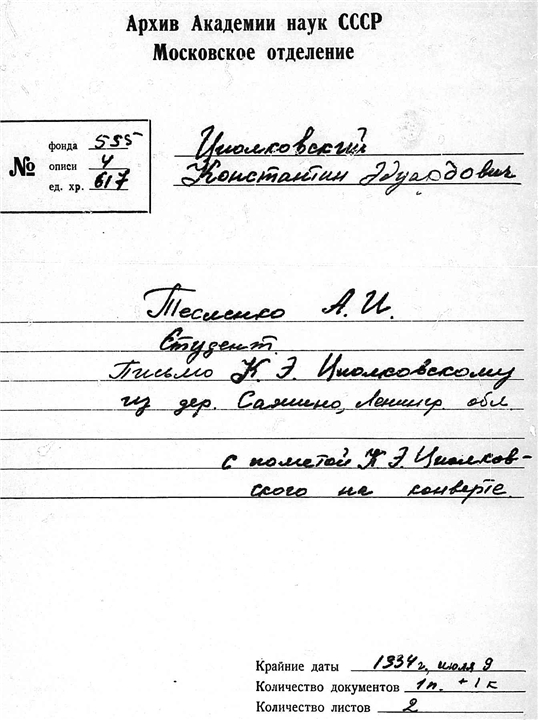 Архив Академии наук СССР
Московское отделение
№
фонда 555
описи 4
ед. хр. 617
Циолковский
Константин Эдуардович
Тесленко А. И.
Студент.
Письмо К. Э. Циолковскому
из дер. Сажино, Ленингр. обл.
с пометой К. Э. Циолков-
ского на конверте.
Крайние даты 1934 г, июля 9
Количество документов 1п. + 1к
Количество листов 2